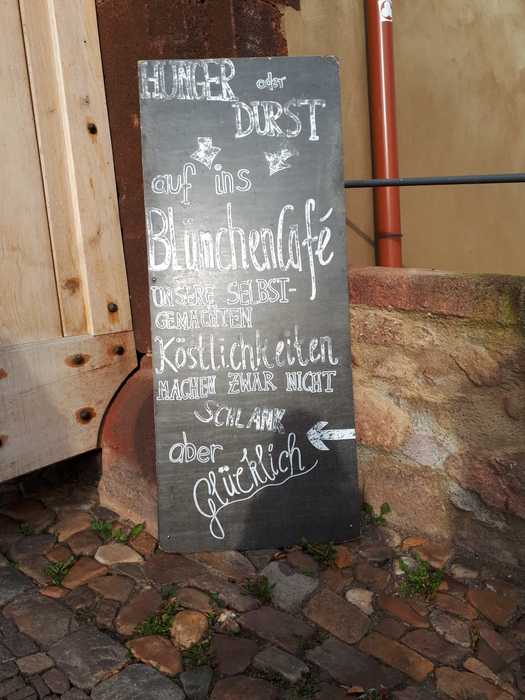 HUNGER oder
DURST
auf ins
BlümchenCafé
UNSERE SELBST-
GEMACHTEN
Köstlichkeiten
MACHEN ZWAR NICHT
SCHLANK
aber
Glücklich